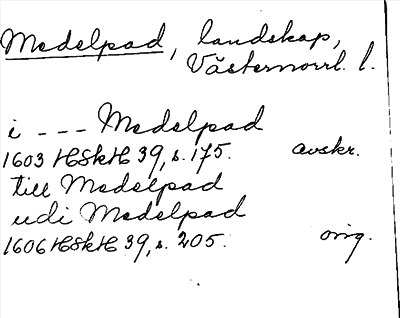 Medelpad, landskap,
Västernorrl. l.
i --- Medelpad
1603 HSkH 39, s. 175. avskr.
till Medelpad
udi Medelpad
1606 HSkH 39, s. 205. orig.